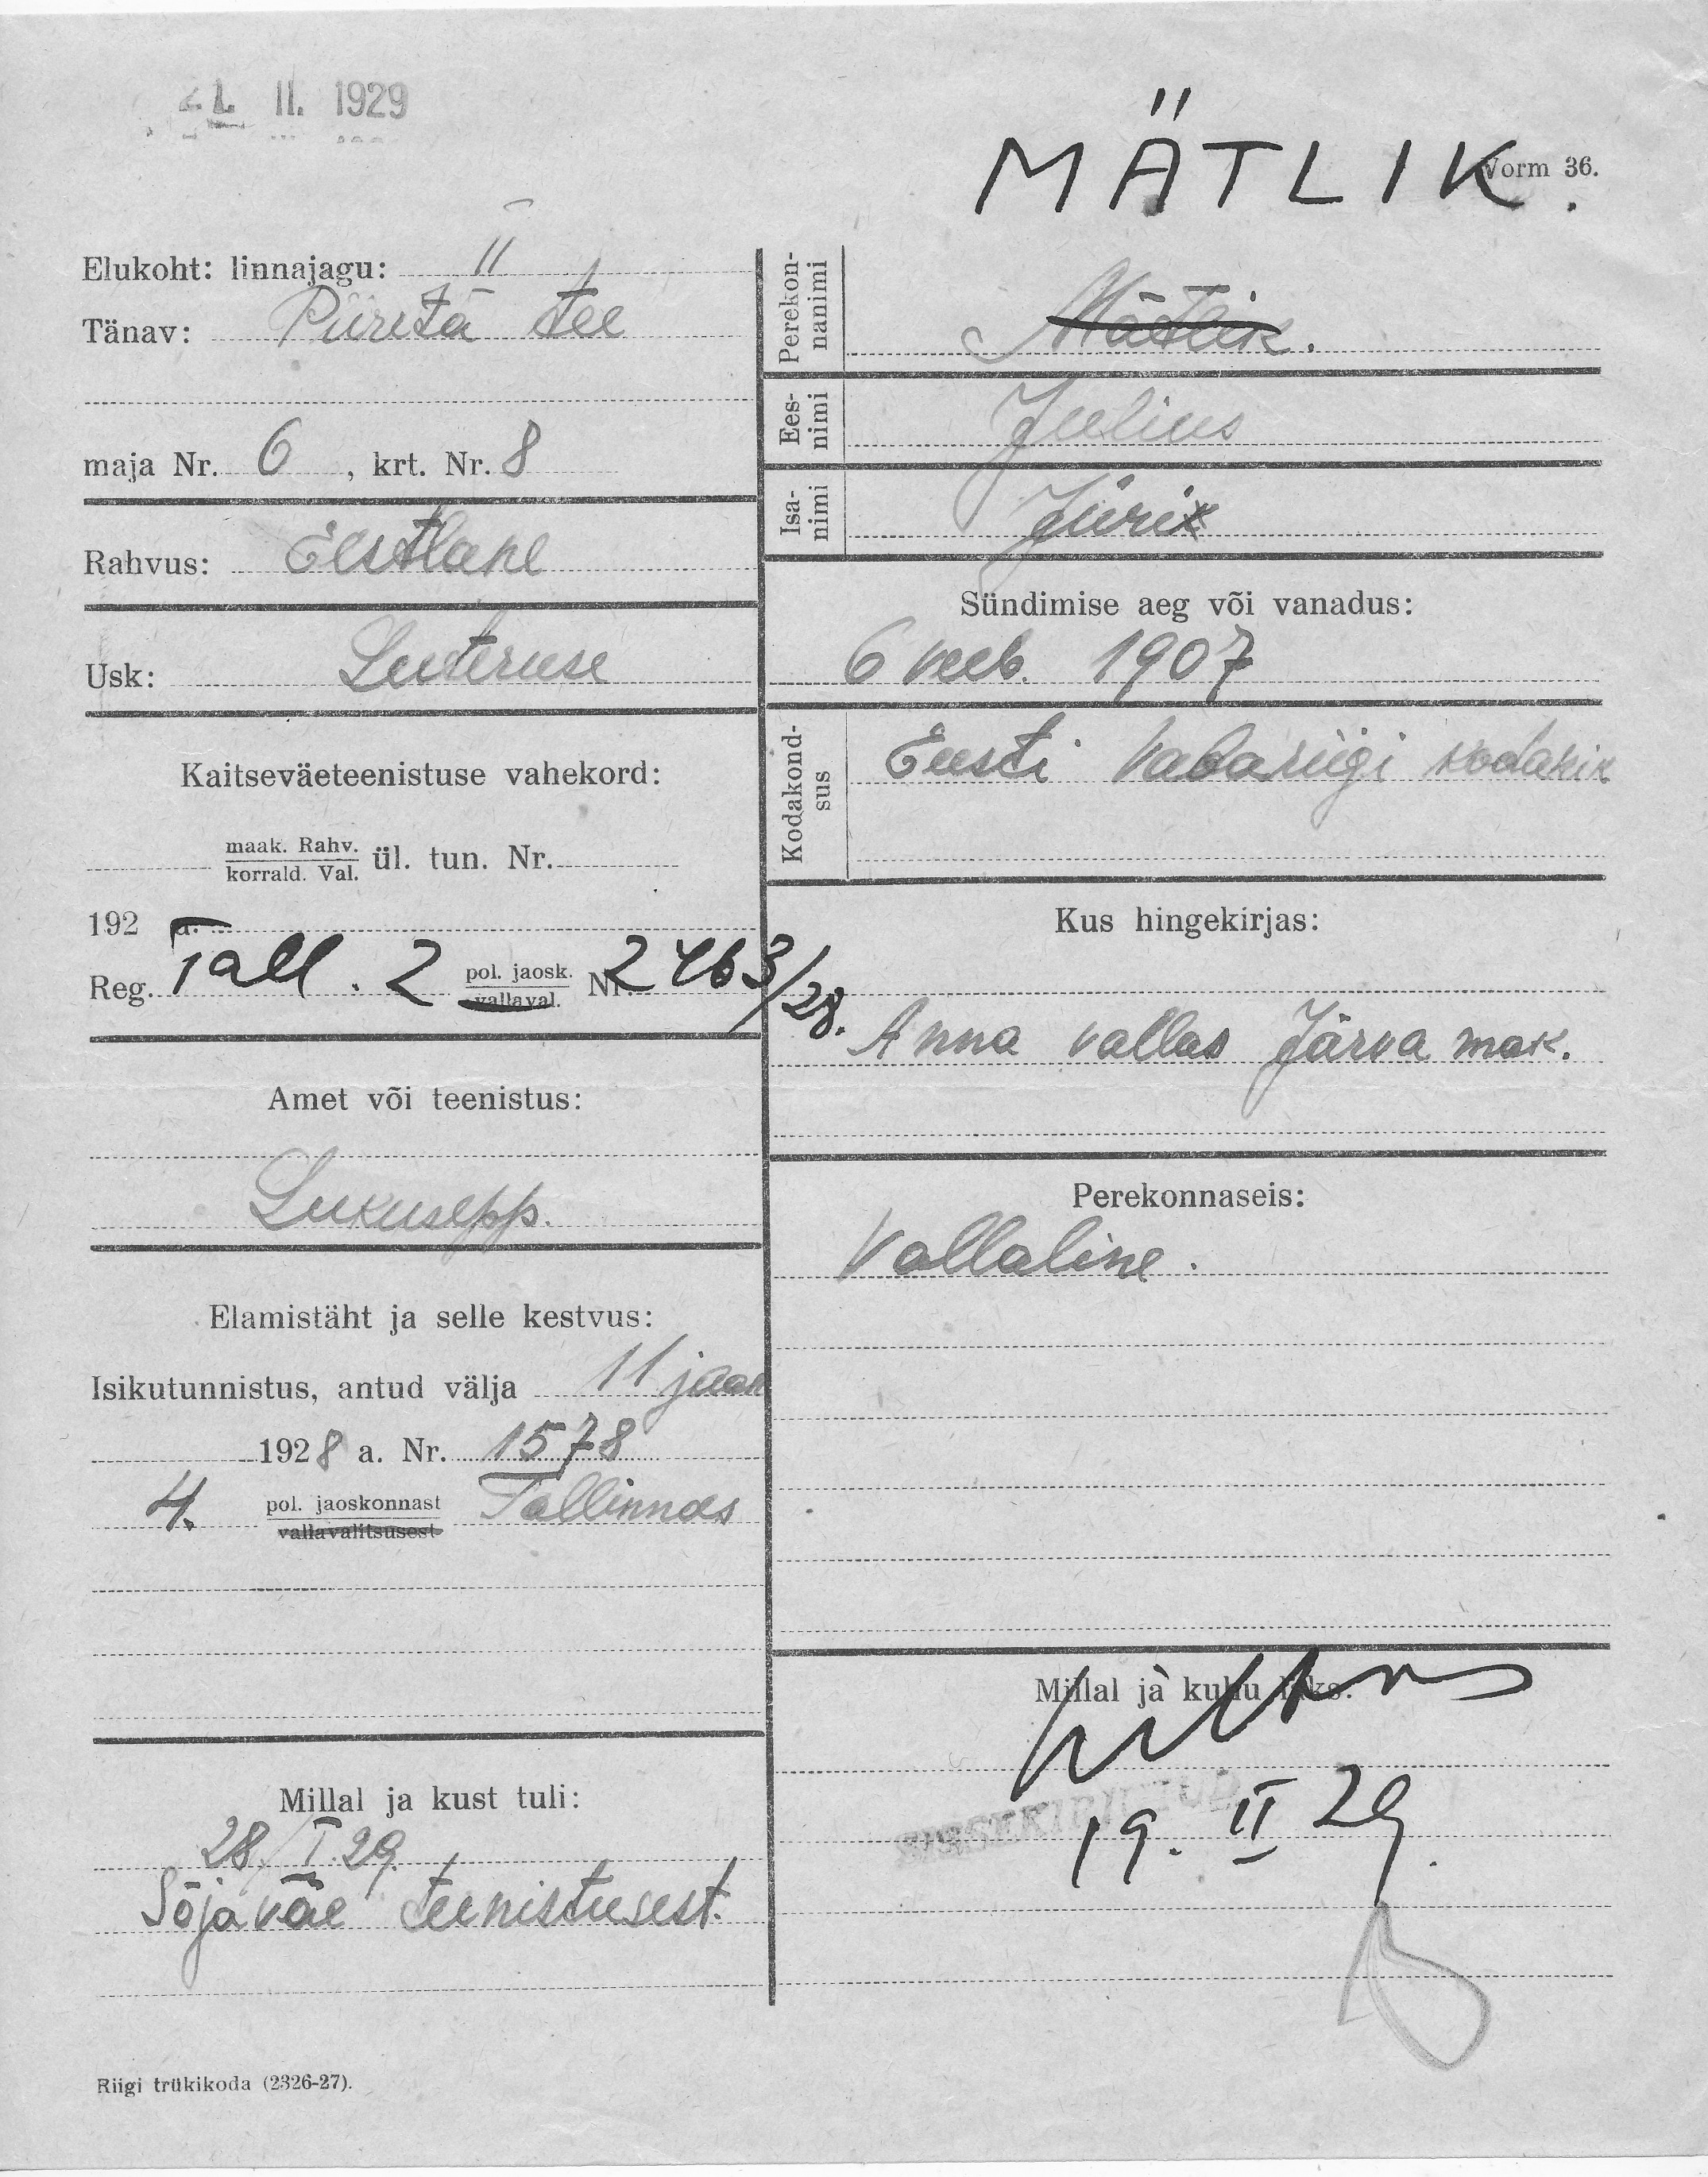 II. 1929
MÄTLIK.
Vorm 36.
Elukoht: linnajagu: II
Tänav: Piiretä tee
maja Nr. 6, krt. Nr. 8
Rahvus: Eestlane
Usk: Luteruse
Kaitseväeteenistuse vahekord:
maak. Rahv.
korrald. Val. ül. tun. Nr.
192 a.
Reg. Tall. 2 pol. jaosk. Nr. 2463/28.
vallaval.
Amet või teenistus:
Lukusepp.
Elamistäht ja selle kestvus:
Isikutunnistus, antud välja 11 jaan
1928 a. Nr. 1578
4. pol. jaoskonnast Tallinnas
vallavalitsusest
Millal ja kust tuli:
28. I. 29.
Sõjaväe teenistusest.
Riigi trükikoda (2326-27).
Perekon-
nanimi
Mätlik.
Ees-
nimi
Julius
Isa-
nimi
Jüri
Sündimise aeg või vanadus:
6 veeb. 1907
Kodakond-
sus
Eesti Vabariigi kodanik
Kus hingekirjas:
Anna vallas Järva mak.
Perekonnaseis:
Vallaline.
Millal ja kuhu läks.
19. II 29.